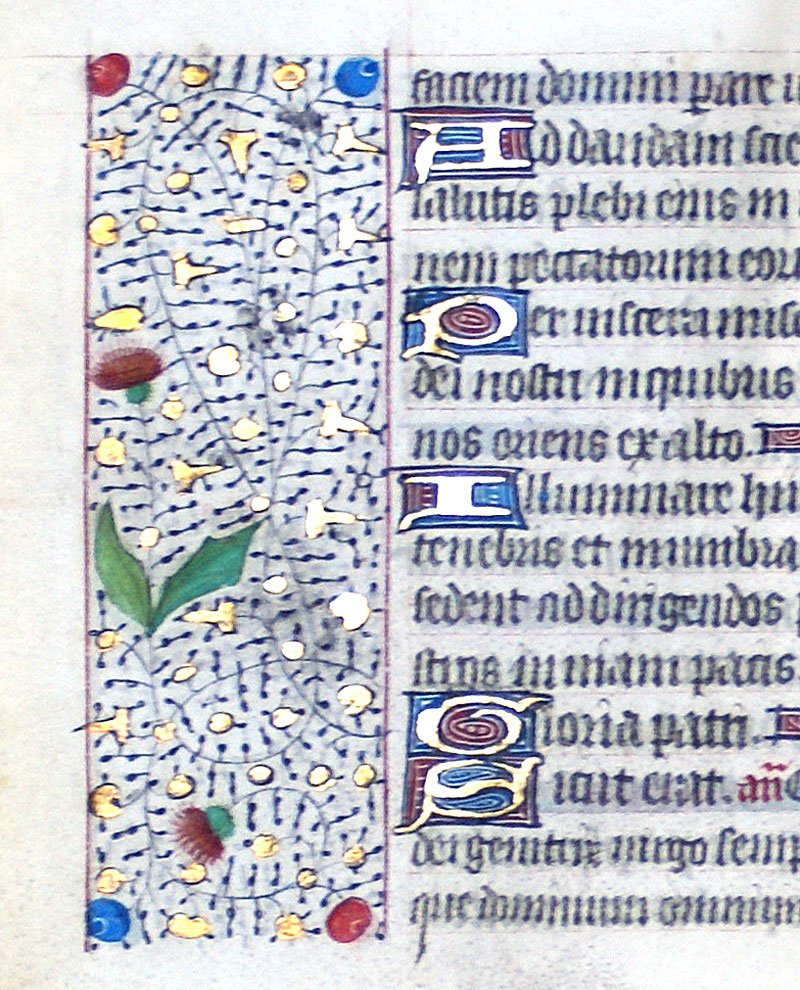 faciem domini parare
Ad dandam scie
salutis plebi eius in
nem peccatorum eoru
Per viscera mise
dei nostri in quibus
nos oriens ex alto.
Illuminare hiis
tenebris et in umbra
sedent ad dirigendos
stros in viam pacis
Gloria patri.
Sicut erat. añ
dei genitrix virgo semp
que dominum omnium